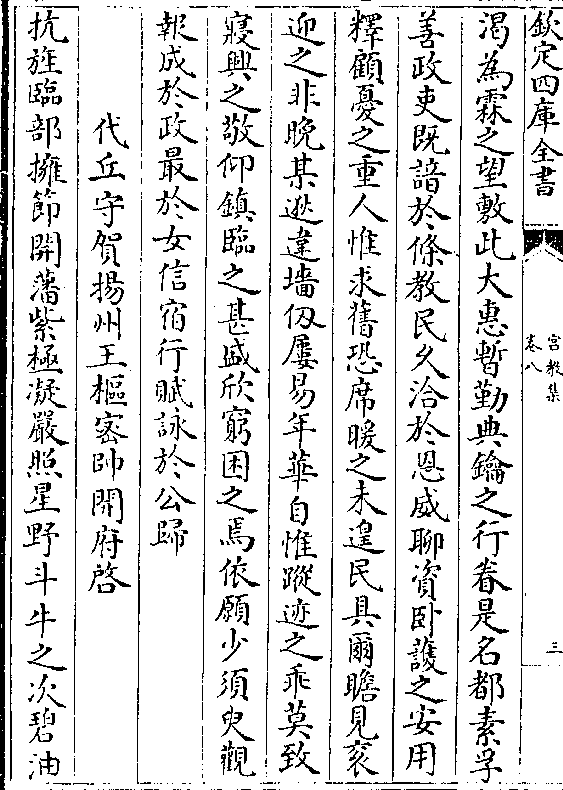 欽定四庫全書
宮教集
卷八
三
渇為霖之望敷此大惠暫勤典鑰之行眷是名都素孚
善政吏既諳於條教民久洽於恩威聊資卧護之安用
釋顧憂之重人惟求舊恐席暖之未遑民具爾瞻見衮
迎之非晚某逖違墻仭屢易年華自惟蹤迹之乖莫致
寢興之敬仰鎮臨之甚盛欣窮困之焉依願少須臾觀
報成於政最於女信宿行賦詠於公歸
代丘守賀揚州王樞宻帥開府啓
抗旌臨部擁節開藩紫極凝嚴照星野斗牛之次碧油